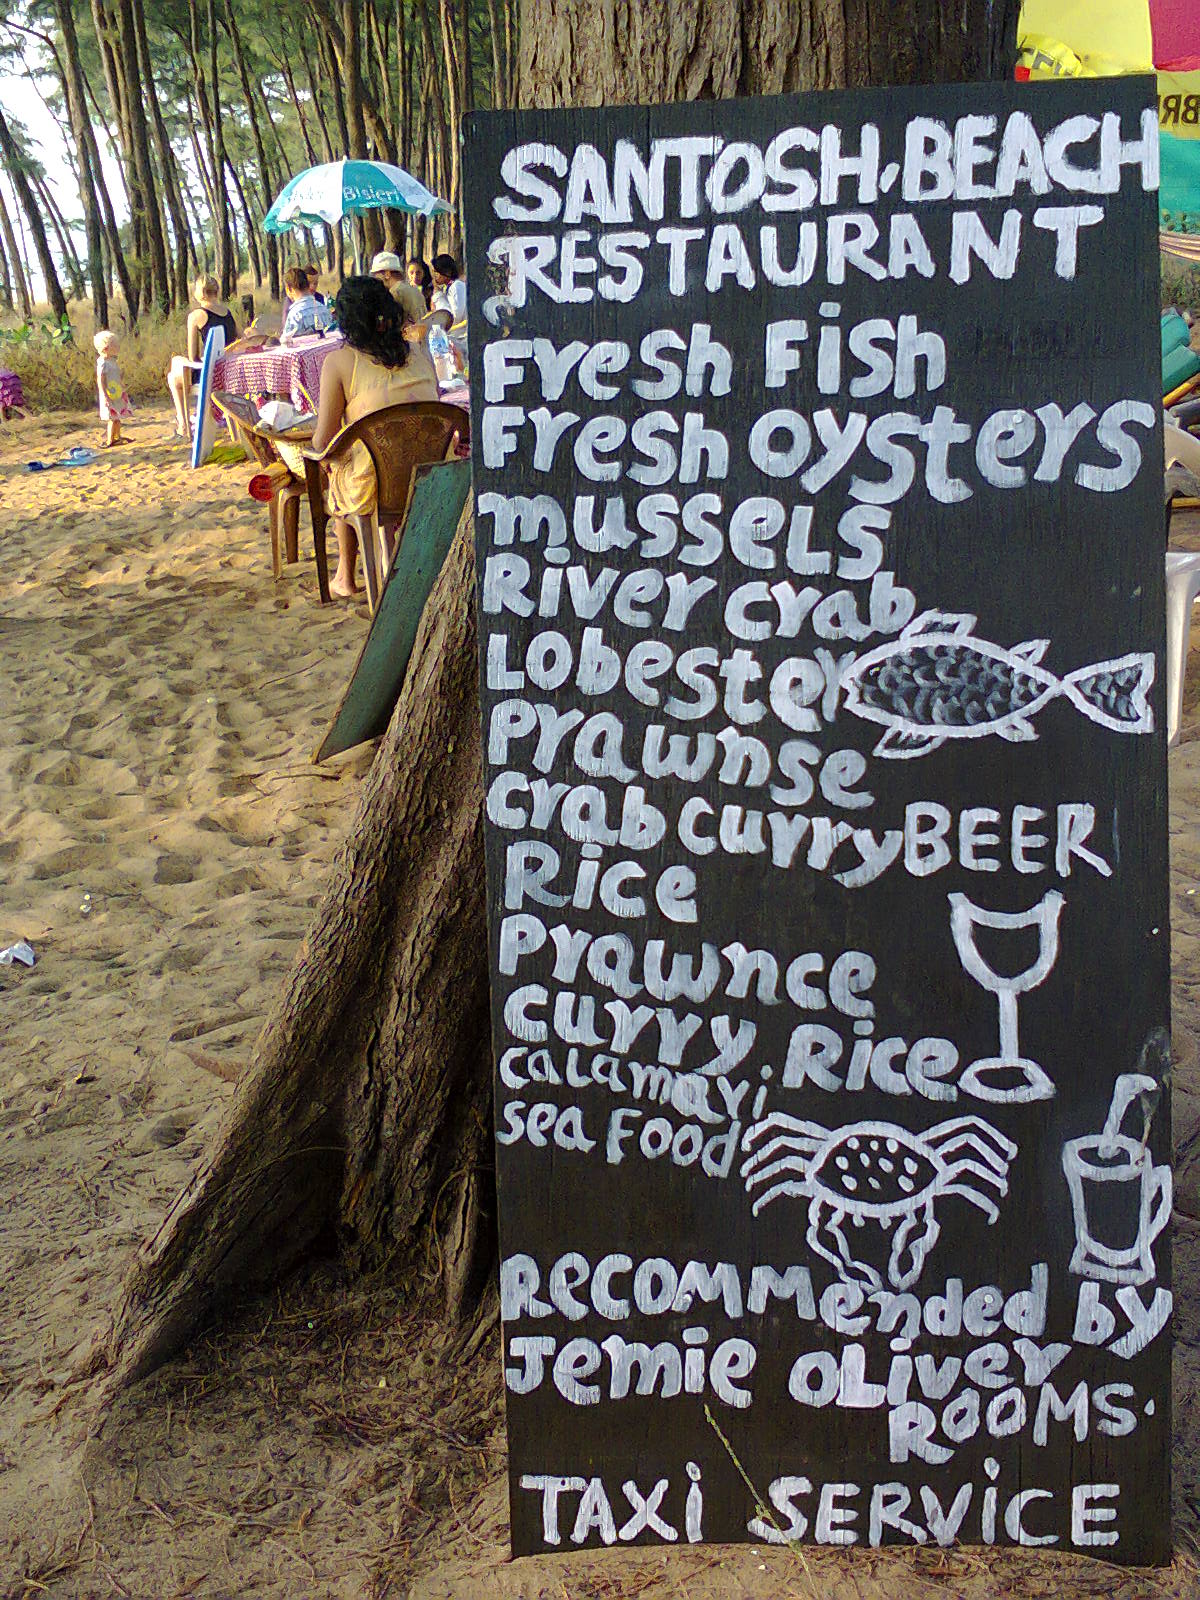 SANTOSH.BEACH
RESTAURANT
Fresh Fish
Fresh Oysters
mussels
River crab
Lobester
Prawnse
crab curry BEER
Rice
Prawnce
curry Rice
calamari
sea Food
Recommended by
Jemie Oliver
ROOMS.
TAXi SERViCE
Bisleri